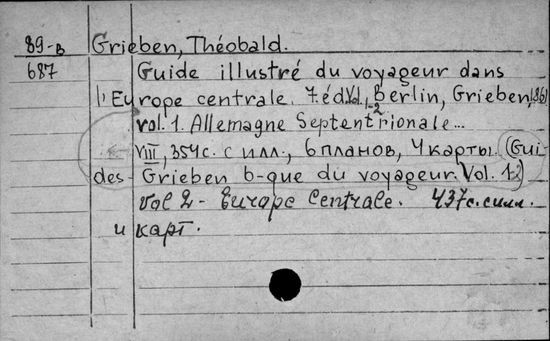 89-в Grieben, Théobald.
687 Guide illustré du voyageur dans
l'Europe centrale. 7. éd. Vol. 1-2 Berlin, Grieben, 1861
vol. 1. Allemagne Septentrionale...
VIII, 354 с. с илл., 6 планов, 4 карты. (Gui-
des-Grieben b-que du voyageur. Vol. 1-2)
Vol 2 - Europe Centrale. 437 с. с илл.
и карт.